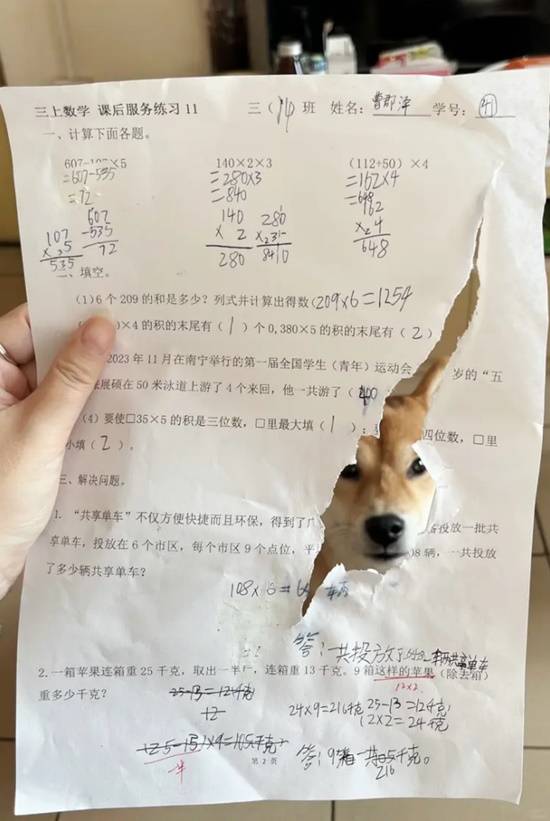 三上数学 课后服务练习11 三(14)班 姓名: 学号: 41
一、计算下面各题。
607-107×5 140×2×3 (112+50)×4
=607-535 =280×3 =162×4
=72 =840 =648
607 140 280 162
107 -535 × 2 × 3 × 4
× 5 72 280 840 648
535
二、填空。
(1)6个209的和是多少?列式并计算出得数(209×6=1254
)×4的积的末尾有(1)个0,380×5的积的末尾有(2)
2023年11月在南宁举行的第一届全国学生(青年)运动会 岁的“五
展硕在50米泳道上游了4个来回,他一共游了(400
(4)要使□35×5的积是三位数,□里最大填(1); 四位数,□里
小填(2)。
三、解决问题。
1. “共享单车”不仅方便快捷而且环保,得到了广 投放一批共
享单车,投放在6个市区,每个市区9个点位,平 08辆,一共投放
了多少辆共享单车?
108×6=64 辆
答:一共投放了648辆共享单车
2.一箱苹果连箱重25千克,取出一半后,连箱重13千克。9箱这样的苹果(除去箱)
重多少千克? 25-13=12(千克) 12×2
12 24×9=216千克 25-13=12千克
12×2=24千克
答:9箱一共216千克。
半
第 2 页